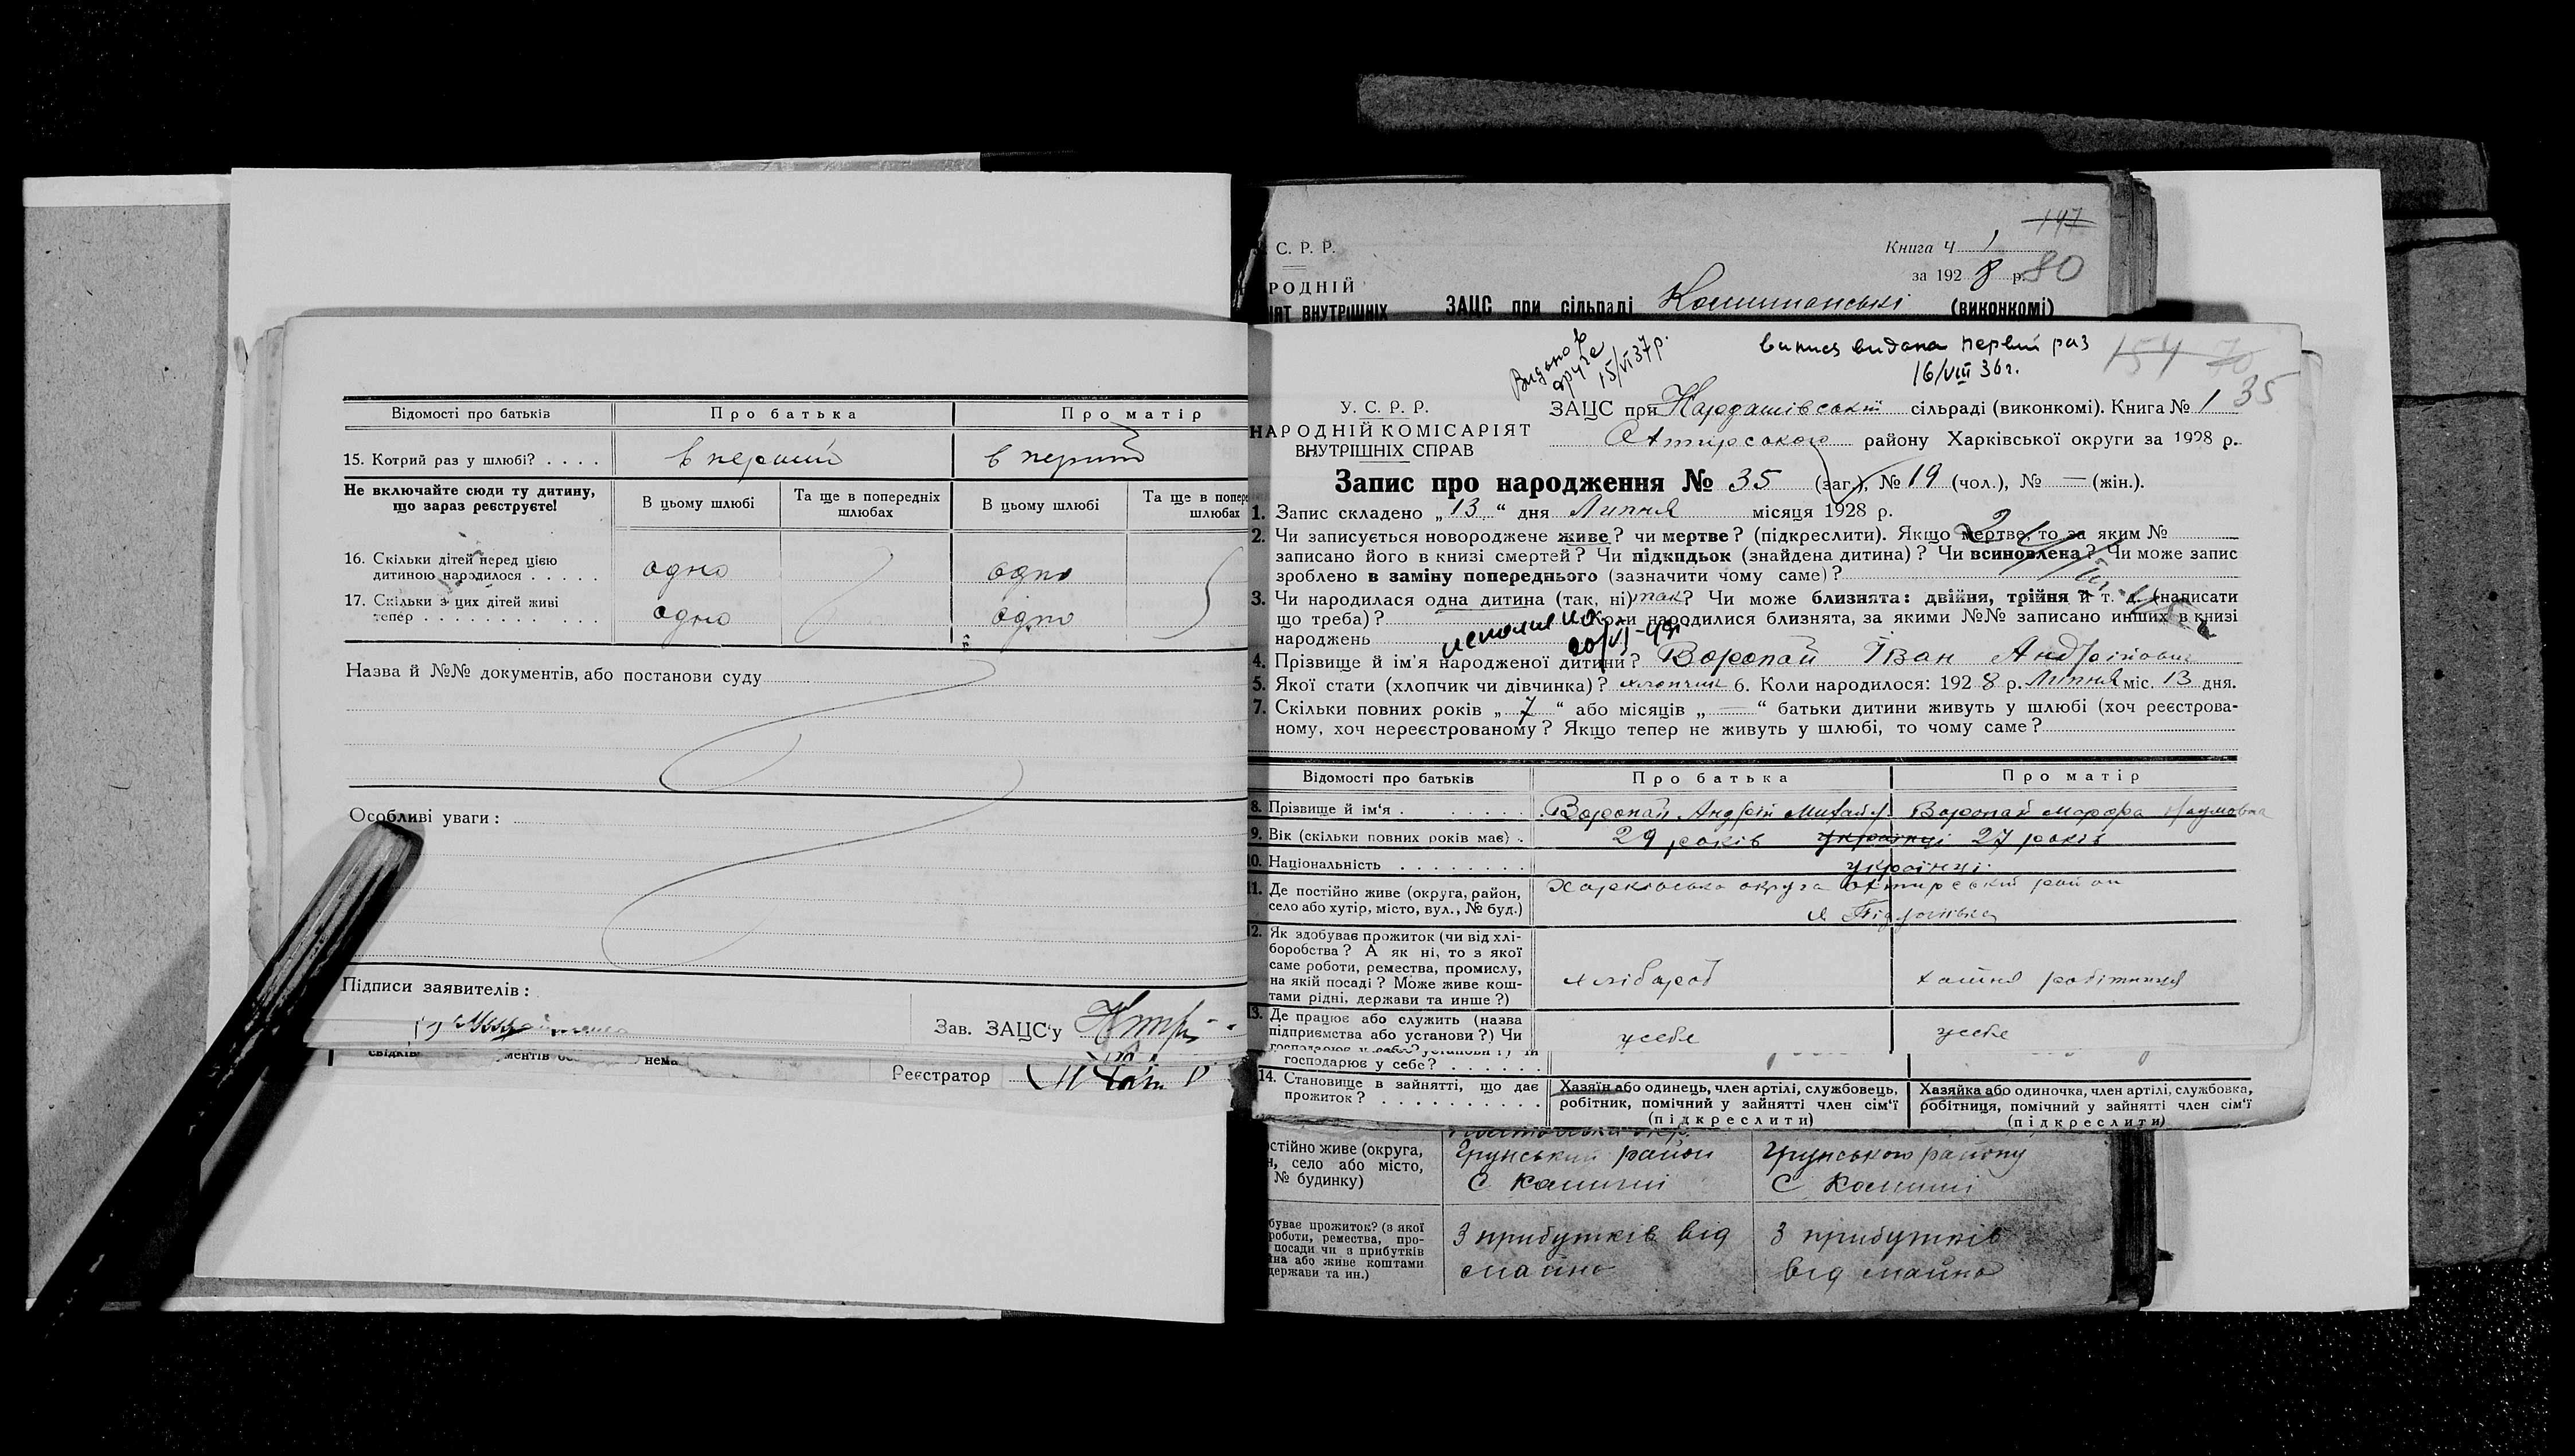 Відомості про батьків Про батька Про матір
15. Котрий раз у шлюбі? . . . . в перший в перший
Не включайте сюди ту дитину, що зараз реєструєте!
В цьому шлюбі Та ще в попередніх шлюбах В цьому шлюбі Та ще в попере
шлюбах
16. Скільки дітей перед цією
дитиною народилося . . . . . одно одно
17. Скільки з цих дітей живі
тепер . . . . . . . . . . . одно одно
Назва й №№ документів, або постанови суду
Особливі уваги:
Підписи заявителів:
Зав. ЗАЦС'у
нема
Реєстратор
147
С. Р. Р.
Книга Ч 1
за 1928 р. 80
РОДНІЙ
ІЯТ ВНУТРІШНІХ ЗАЦС при сільраді (виконкомі)
Видано в
друге
15/VI 37 р.
випись видана первий раз
16/VIII 36 г.
154 70
35
У. С. Р. Р.
НАРОДНІЙ КОМІСАРІЯТ
ВНУТРІШНІХ СПРАВ
ЗАЦС при Кардашівській сільраді (виконкомі). Книга № 1
Охтирського району Харківської округи за 1928 р.
Запис про народження № 35 (заг.), № 19 (чол.), № — (жін.).
1. Запис складено „13“ дня Липня місяця 1928 р.
2. Чи записується новороджене живе? чи мертве? (підкреслити). Якщо мертве, то за яким №
записано його в книзі смертей? Чи підкидьок (знайдена дитина)? Чи всиновлена? Чи може запис
зроблено в заміну попереднього (зазначити чому саме)?
3. Чи народилася одна дитина (так, ні) так? Чи може близнята: двійня, трійня й т. д. (написати
що треба)? Коли народилися близнята, за якими №№ записано инших в книзі
народжень
4. Прізвище й ім'я народженої дитини? Воропай Іван Андрійович
5. Якої стати (хлопчик чи дівчинка)? хлопчик 6. Коли народилося: 1928 р. Липня міс. 13 дня.
7. Скільки повних років „7“ або місяців „—“ батьки дитини живуть у шлюбі (хоч реєстрова-
ному, хоч нереєстрованому? Якщо тепер не живуть у шлюбі, то чому саме?
Відомості про батьків Про батька Про матір
8. Прізвище й ім'я . . . . . . . Воропай Андрій Михайл. Воропай Марфа Наумовна
9. Вік (скільки повних років має) . 29 років українці 27 років
10. Національність . . . . . . . . українці
11. Де постійно живе (округа, район,
село або хутір, місто, вул., № буд.)
Харківська округа Охтирський район
12. Як здобуває прожиток (чи від хлі-
боробства? А як ні, то з якої
саме роботи, ремества, промислу,
на якій посаді? Може живе кош-
тами рідні, держави та инше?)
хлібороб хатня робітниця
13. Де працює або служить (назва
підприємства або установи?) Чи
господарює у себе? . . . . . .
усебе усебе
14. Становище в зайнятті, що дає
прожиток? . . . . . . . . . .
Хазяїн або одинець, член артілі, службовець,
робітник, помічний у зайнятті член сім'ї
(підкреслити)
Хазяйка або одиночка, член артілі, службовка,
робітниця, помічний у зайнятті член сім'ї
(підкреслити)
остійно живе (округа,
н, село або місто,
№ будинку)
Грунський район
Грунського району
бував прожиток? (з якої
роботи, ремества, про-
посади чи з прибутків
йна або живе коштами
держави та ин.)
З прибутків від
майна
З прибутків
від майна